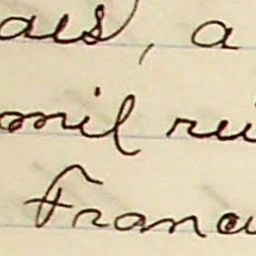 aes, a
mil rei
Franc